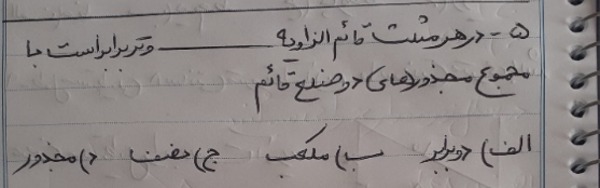 ۵- در هر مثلث قائم الزاویه ــــــــ وتر برابر است با
مجموع مجذورهای دو ضلع قائم
الف) دوبرابر ب) مکعب ج) نصف د) مجذور